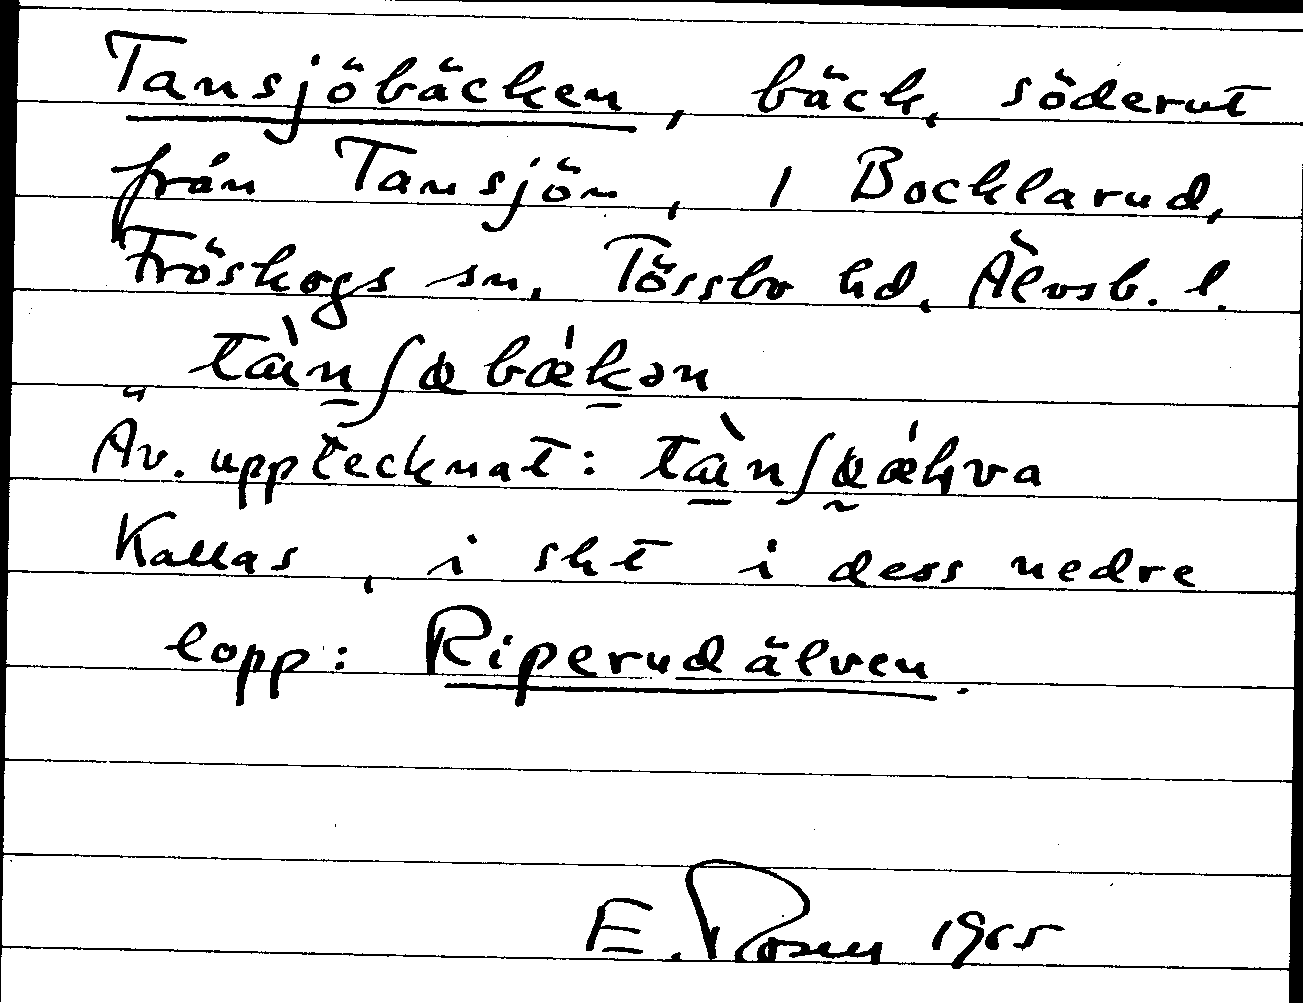 Tansjöbäcken, bäck, söderut
från Tansjön, i Bocklarud,
Fröskogs sn, Tössbo hd, Älvsb. l.
tàn̠ʃøbǽk̠ən
Äv. upptecknat: tàn̠ʃøǽɧva
Kallas, i sht i dess nedre
lopp: Riperudälven.
E. Rosen 1965